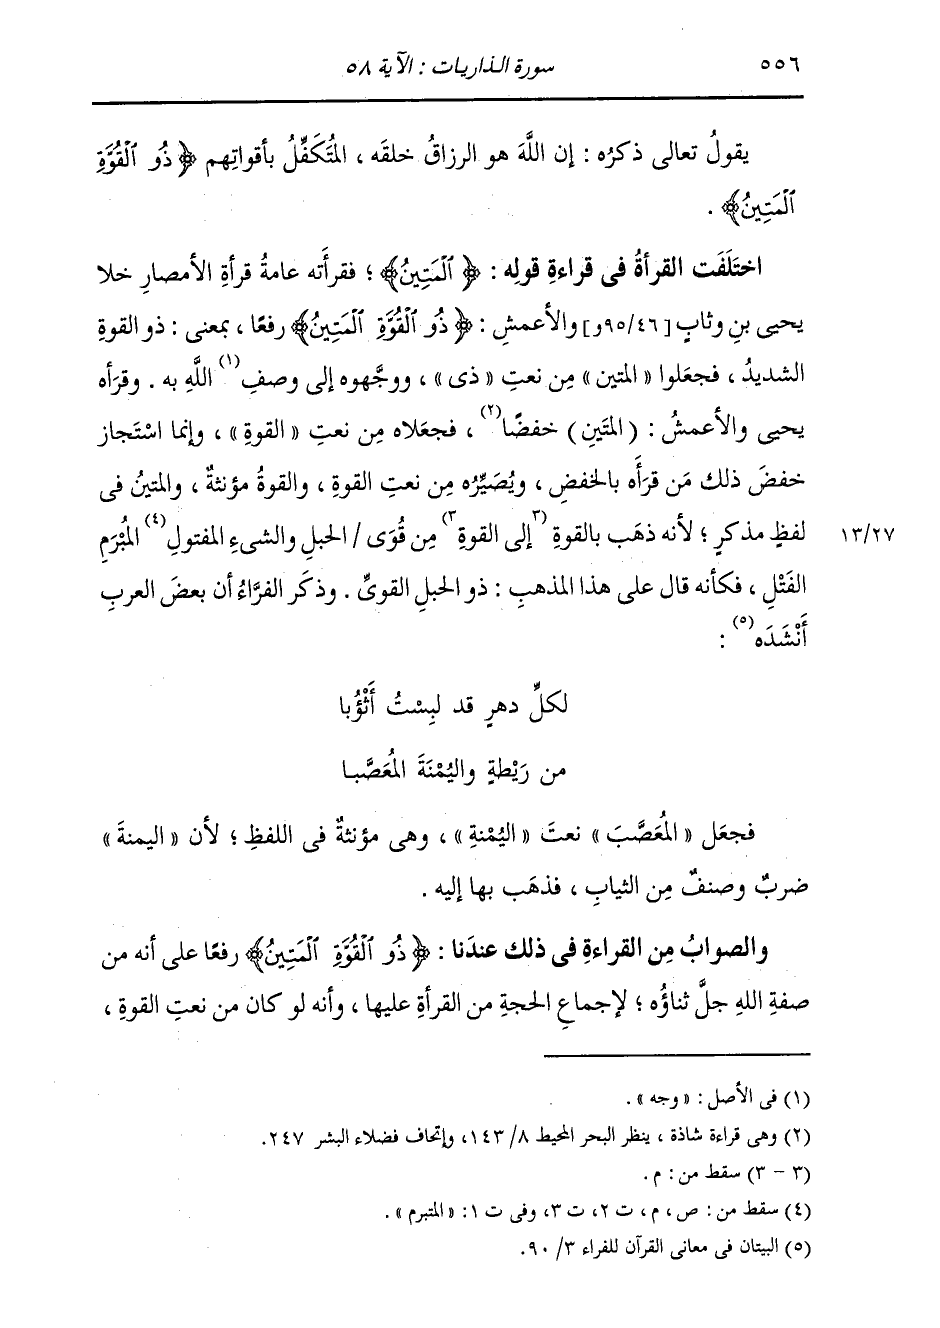 ٥٥٦ سورة الذاريات : الآية ٥٨
يقولُ تعالى ذكرُه : إن اللَّهَ هو الرزاقُ خلقَه ، المُتكَفِّلُ بأقواتِهم ﴿ ذُو ٱلْقُوَّةِ
ٱلْمَتِينُ﴾ .
اختَلَفَت القرأةُ فى قراءةِ قولِه : ﴿ ٱلْمَتِينُ﴾ ؛ فقرأَته عامةُ قرأةِ الأمصارِ خلا
يحيى بنِ وثابٍ [٩٥/٤٦و] والأعمشِ : ﴿ ذُو ٱلْقُوَّةِ ٱلْمَتِينُ﴾ رفعًا ، بمعنى : ذو القوةِ
الشديدُ ، فجعَلوا « المتين » مِن نعتِ « ذى » ، ووجَّهوه إلى وصفِ(١) اللَّهِ به . وقرَأه
يحيى والأعمشُ : ( المَتَينِ ) خفضًا(٢) ، فجعَلاه مِن نعتِ « القوةِ » ، وإنما اسْتَجاز
خفضَ ذلك مَن قرَأَه بالخفضِ ، ويُصَيِّرُه مِن نعتِ القوةِ ، والقوةُ مؤنثةٌ ، والمتينُ فى
لفظٍ مذكرٍ ؛ لأنه ذهَب بالقوةِ (٣إلى القوةِ٣) مِن قُوَى / الحبلِ والشىءِ المفتولِ(٤) المُبْرَمِ ١٣/٢٧
الفَتْلِ ، فكأنه قال على هذا المذهبِ : ذو الحبلِ القوىِّ . وذكَر الفرَّاءُ أن بعضَ العربِ
أَنْشَدَه(٥) :
لكلِّ دهرٍ قد لبِسْتُ أَثْؤُبا
من رَيْطةٍ واليُمْنَةَ المُعَصَّبا
فجعَل « المُعَصَّبَ » نعتَ « اليُمْنةِ » ، وهى مؤنثةٌ فى اللفظِ ؛ لأن « اليمنةَ »
ضربٌ وصنفٌ مِن الثيابِ ، فذهَب بها إليه .
والصوابُ مِن القراءةِ فى ذلك عندَنا : ﴿ ذُو ٱلْقُوَّةِ ٱلْمَتِينُ﴾ رفعًا على أنه من
صفةِ اللهِ جلَّ ثناؤُه ؛ لإجماعِ الحجةِ من القرأةِ عليها ، وأنه لو كان من نعتِ القوةِ ،
(١) فى الأصل : « وجه » .
(٢) وهى قراءة شاذة ، ينظر البحر المحيط ٨/ ١٤٣، وإتحاف فضلاء البشر ٢٤٧.
(٣ - ٣) سقط من : م .
(٤) سقط من : ص ، م ، ت ٢، ت ٣، وفى ت ١: « المتبرم » .
(٥) البيتان فى معانى القرآن للفراء ٣/ ٩٠.